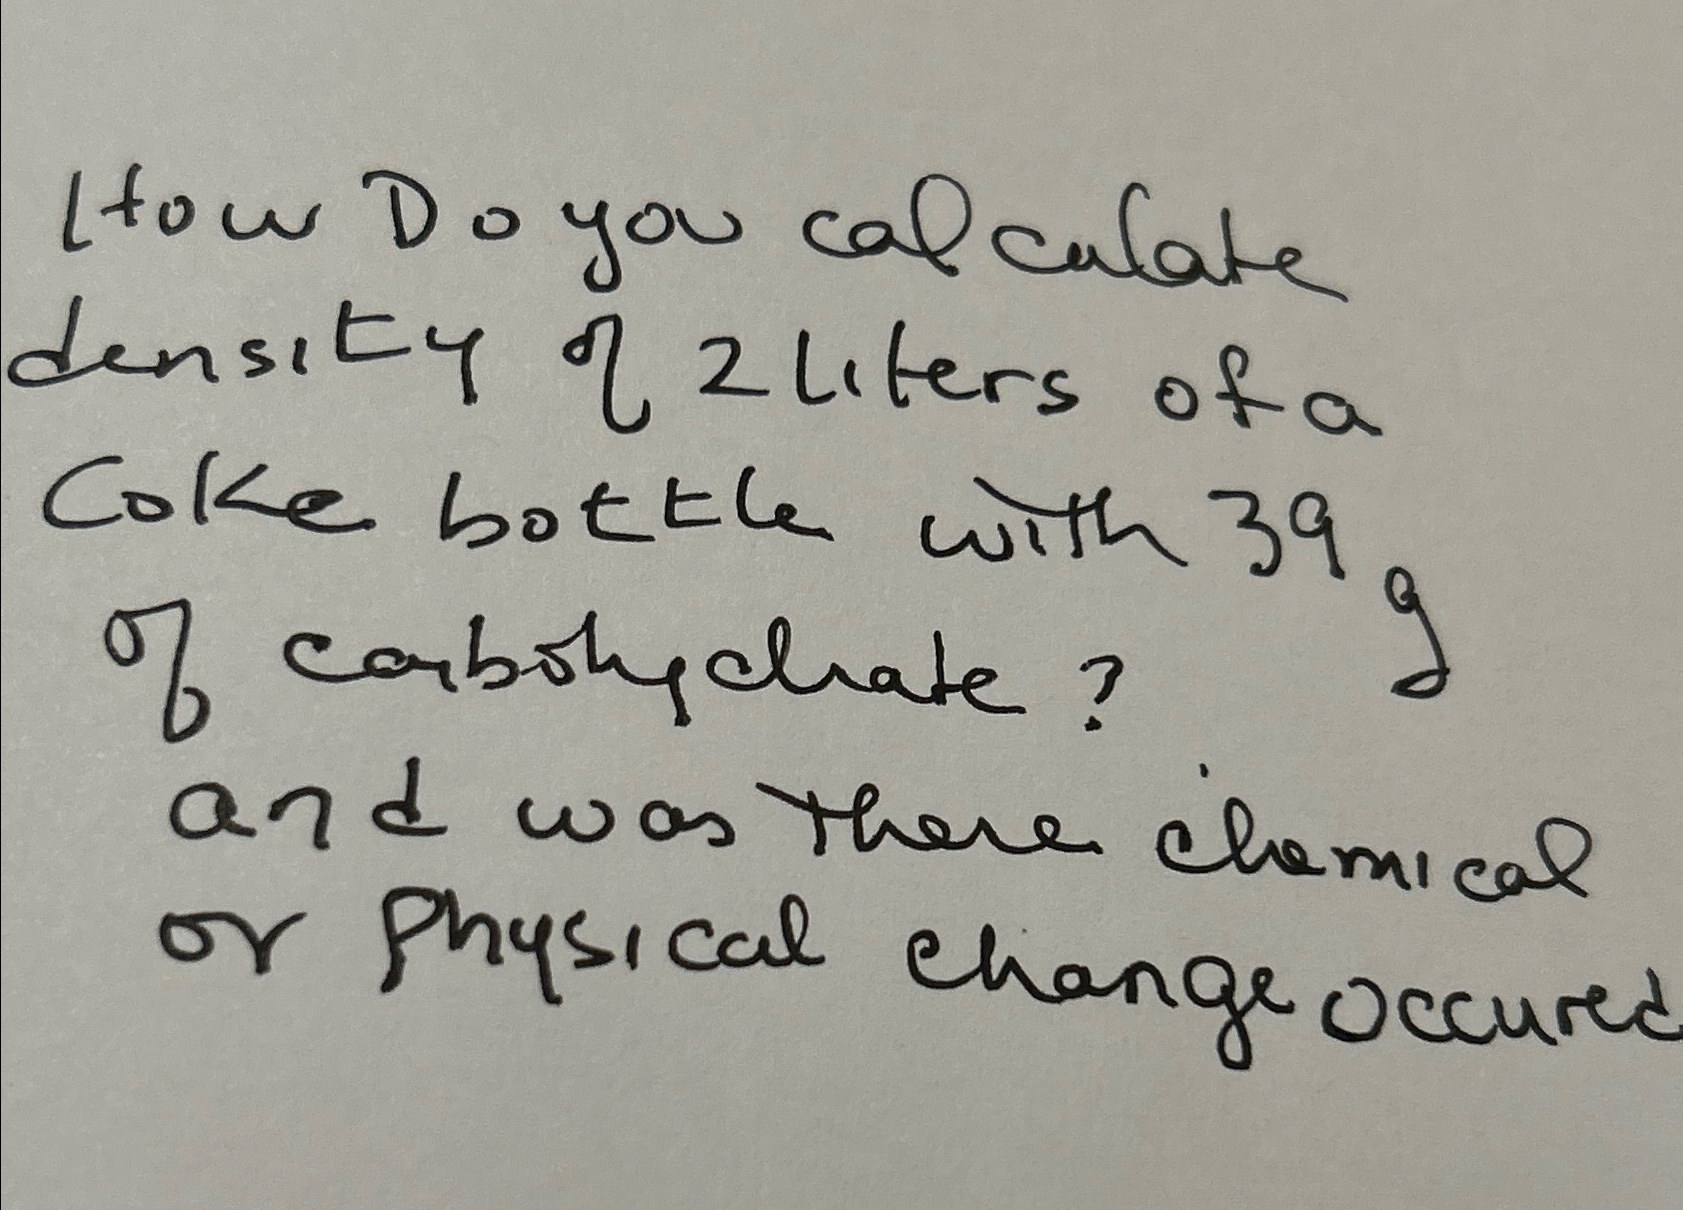 How Do you calculate
density of 2 liters of a
Coke bottle with 39 g
of carbohydrate ?
and was there chemical
or physical change occured